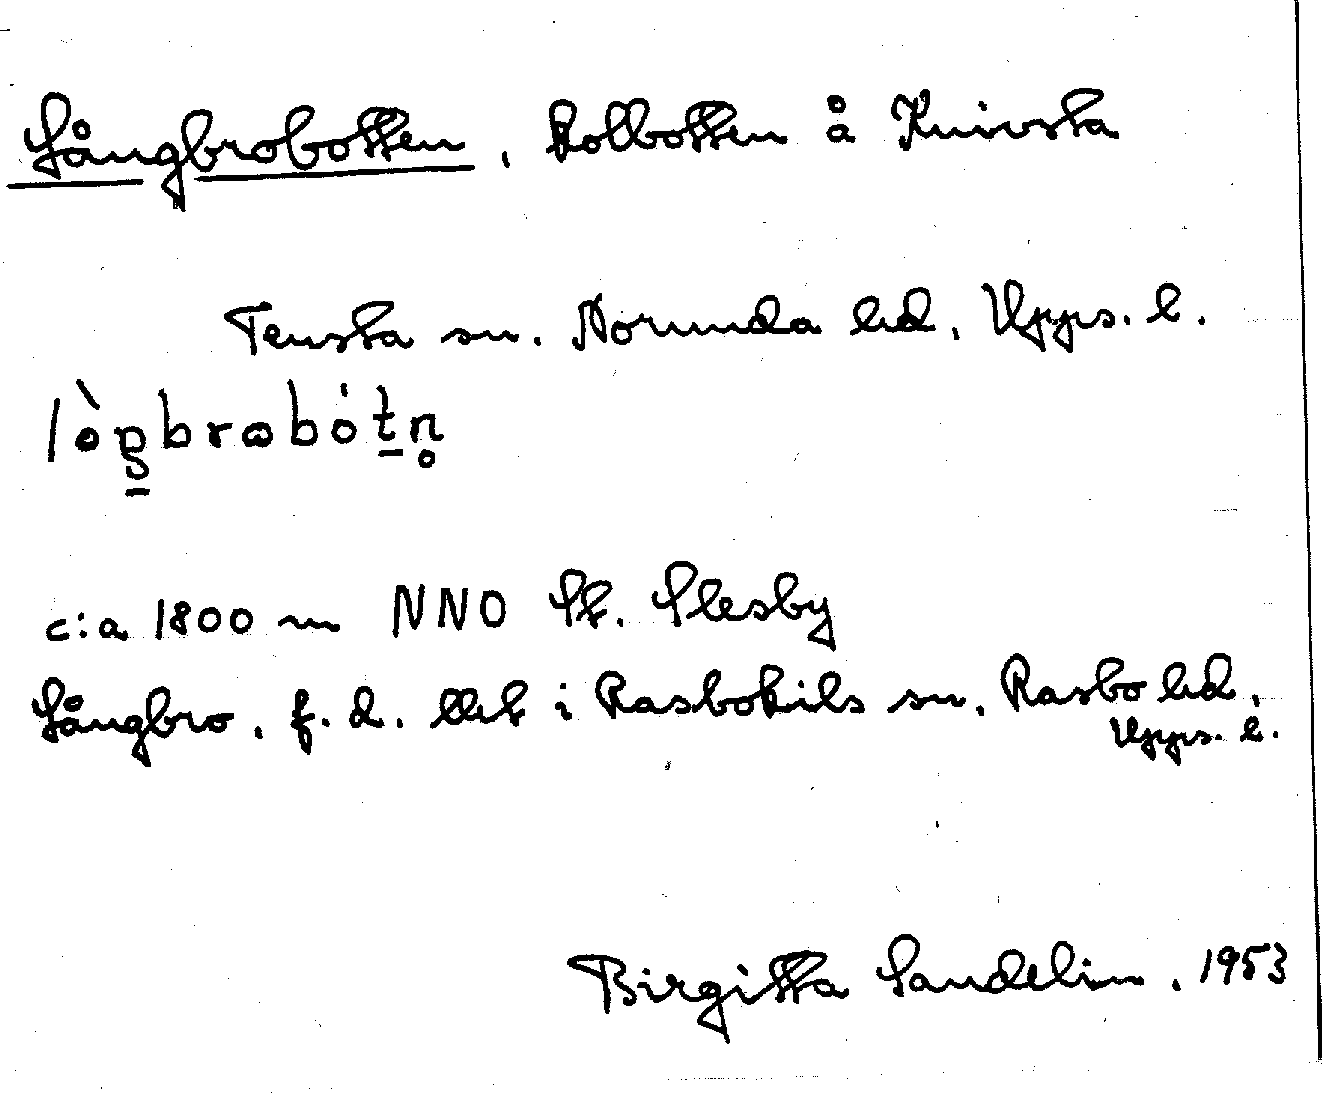 Långbrobotten, kolbotten å Knivsta
Tensta sn. Norunda hd, Upps. l.
lòŋbrωbót̠n̥
c:a 1800 m NNO
Långbro, f.d. i Rasbokils sn, Rasbo hd,
Upps. l.
Birgitta Sandelin, 1953